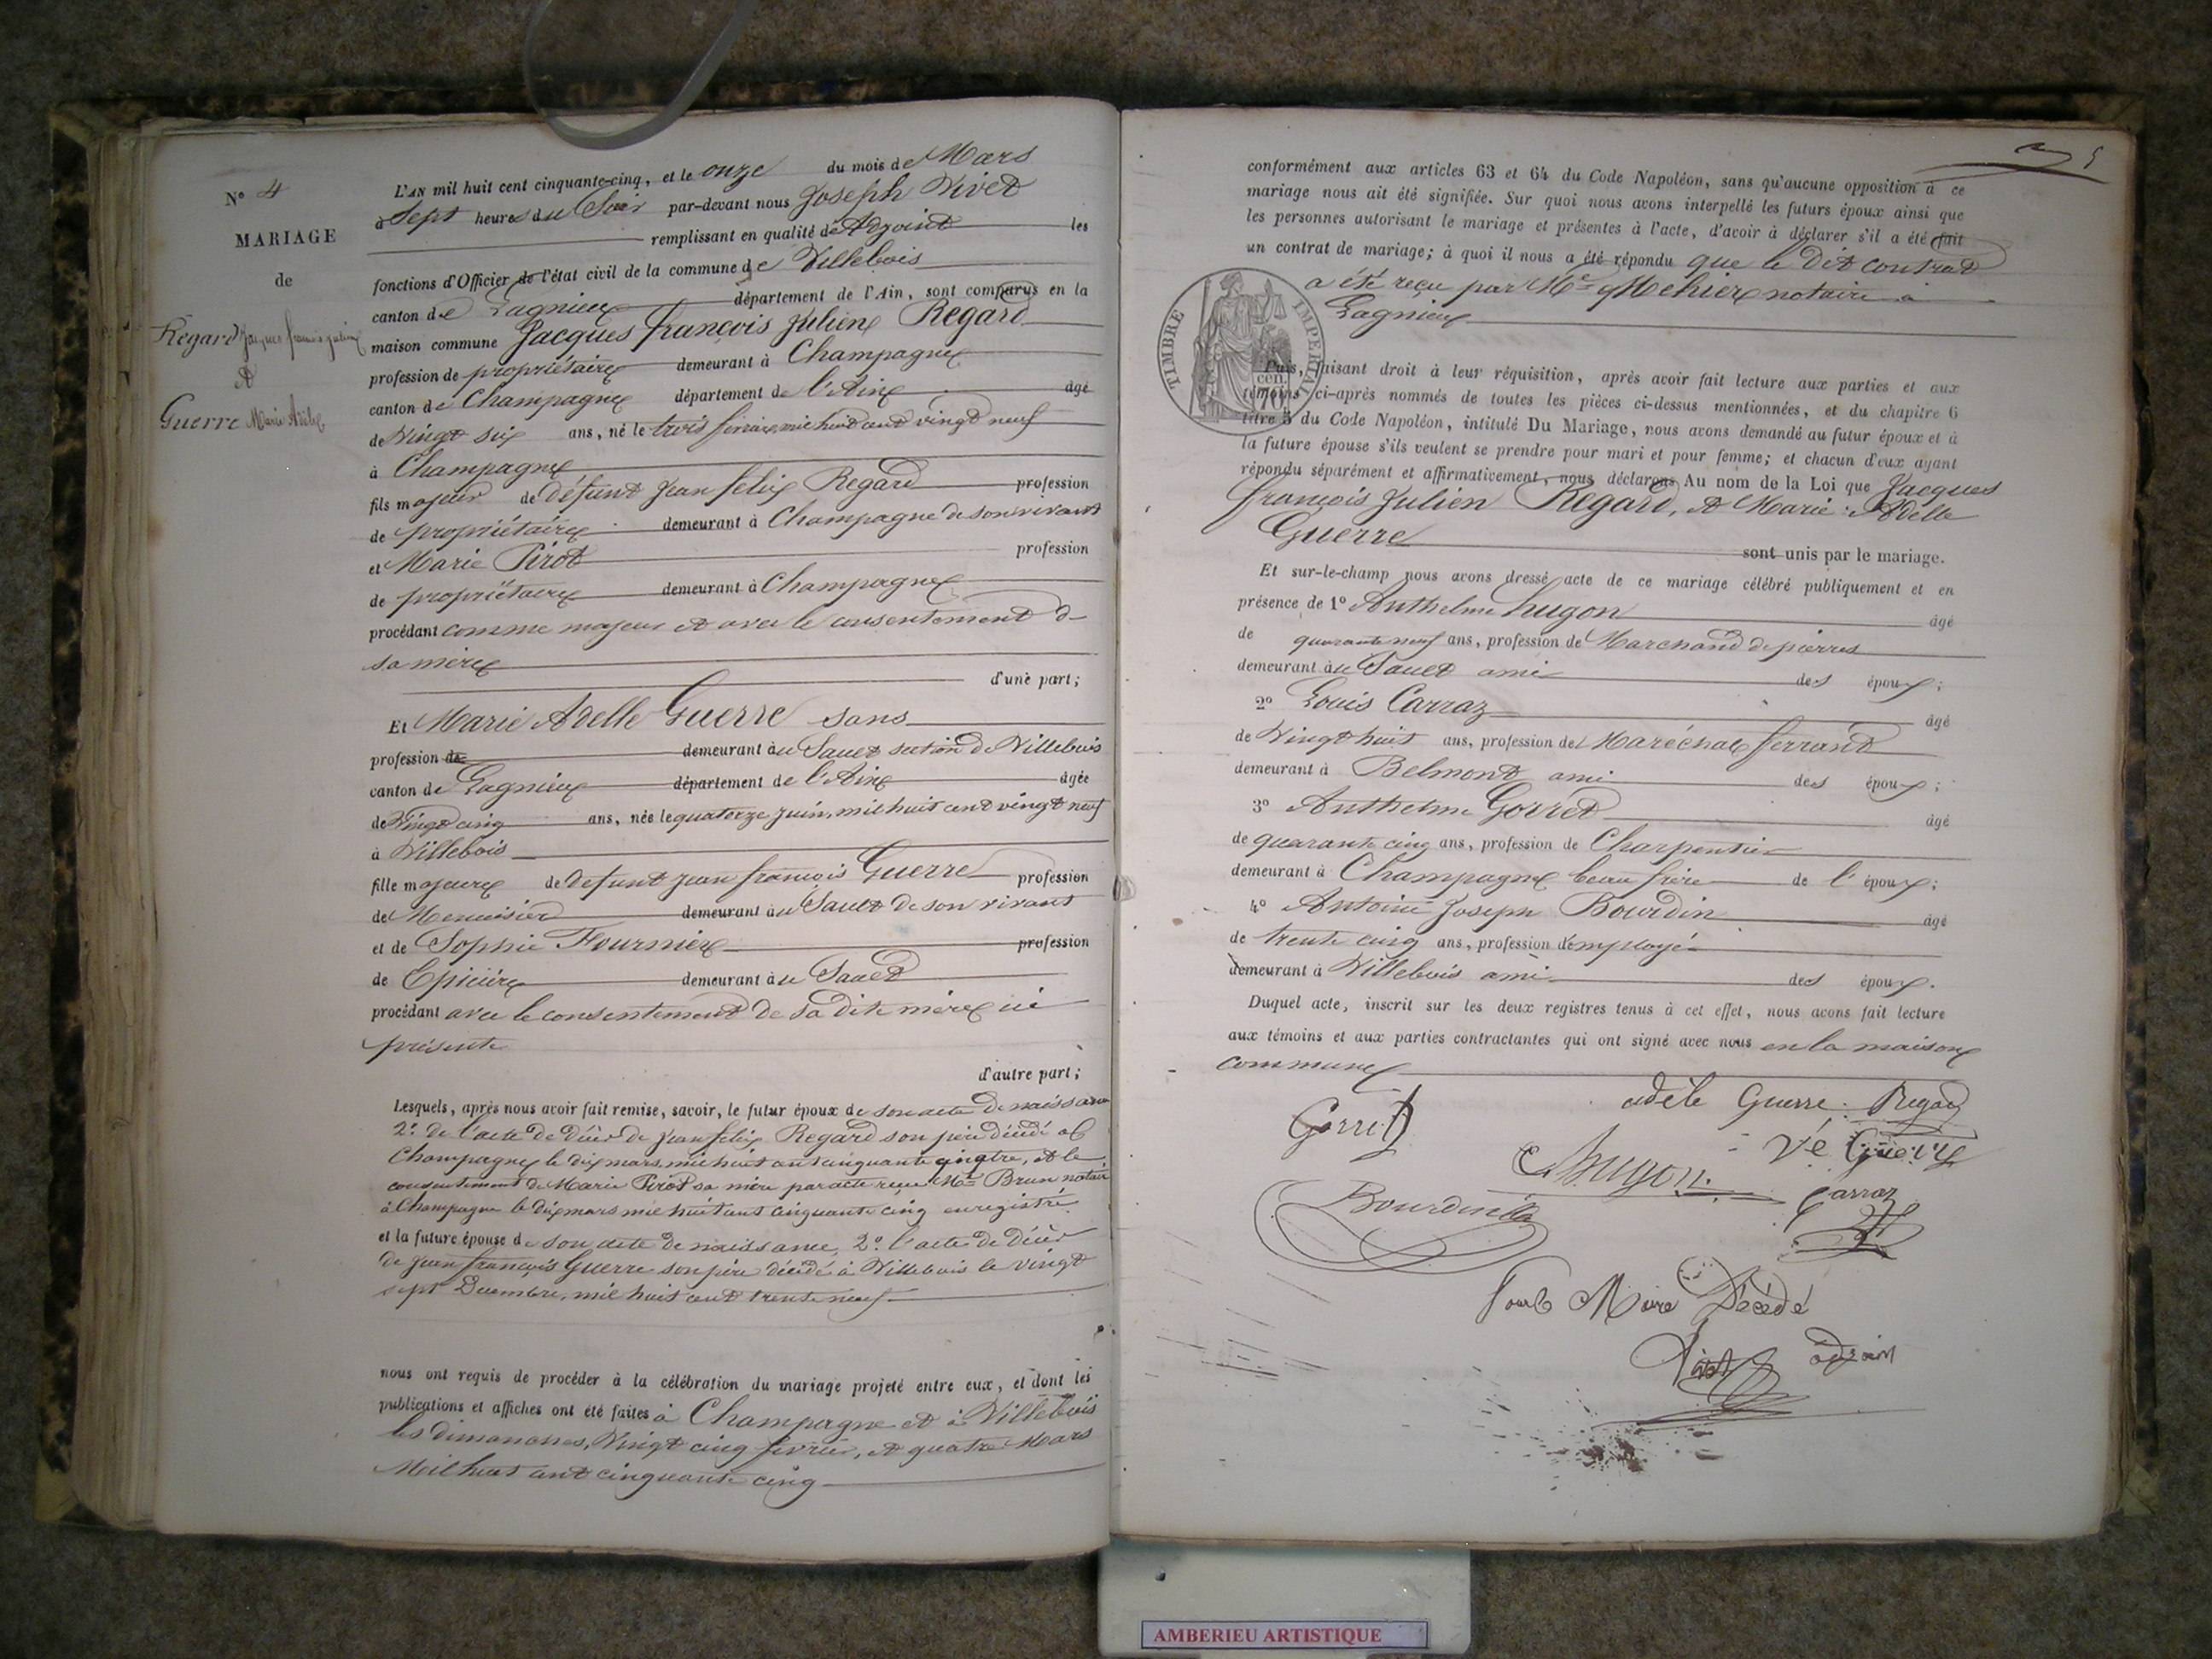 N° 4
MARIAGE
de
Regard Jacques françois julien
et
Guerre Marie Adèle
L'AN mil huit cent cinquante-cinq, et le onze du mois de Mars
à Sept heures du Soir par-devant nous Joseph Vivet
remplissant en qualité de Adjoint les
fonctions d'Officier de l'état civil de la commune de Villebois
canton de Lagnieu département de l'Ain, sont comparus en la
maison commune Jacques françois Julien Regard
profession de propriétaire demeurant à Champagne
canton de Champagne département de l'Ain âgé
de Vingt six ans, né le trois fevrier mil huit cent vingt neuf
à Champagne
fils majeur de défunt Jean felix Regard profession
de propriétaire demeurant à Champagne de son vivant
et Marie Pirot profession
de propriétaire demeurant à Champagne
procédant comme majeur et avec le consentement de
sa mère
d'une part;
Et Marie Adelle Guerre sans
profession de demeurant au Sault section de Villebois
canton de Lagnieu département de l'Ain âgée
de Vingt cinq ans, née le quatorze juin, mil huit cent vingt neuf
à Villebois
fille majeure de defunt jean françois Guerre profession
de Menuisier demeurant au Sault de son vivant
et de Sophie Fournier profession
de Epicière demeurant au Sault
procédant avec le consentement de sa dite mère ici
présente
d'autre part;
Lesquels, après nous avoir fait remise, savoir, le futur époux de son acte de naissance
2° de l'acte de décès de Jean felix Regard son père décédé à
Champagne le dix mars, mil huit cent cinquante et le
consentement de Marie Pirot sa mère par acte reçu Me Brun notaire
à Champagne le dix mars mil huit cent cinquante cinq enregistré
et la future épouse de son acte de naissance, 2° l'acte de décès
de Jean françois Guerre son père décédé à Villebois le vingt
sept Décembre, mil huit cent trente neuf
nous ont requis de procéder à la célébration du mariage projeté entre eux, et dont les
publications et affiches ont été faites à Champagne et à Villebois
les dimanches, Vingt cinq février, et quatre Mars
Mil huit cent cinquante cinq
5
conformément aux articles 63 et 64 du Code Napoléon, sans qu'aucune opposition à ce
mariage nous ait été signifiée. Sur quoi nous avons interpellé les futurs époux ainsi que
les personnes autorisant le mariage et présentes à l'acte, d'avoir à déclarer s'il a été fait
un contrat de mariage; à quoi il nous a été répondu que le dit contrat
a été reçu par Me Mehier notaire à
Lagnieu
TIMBRE IMPERIAL
70 cen.
Puis, faisant droit à leur réquisition, après avoir fait lecture aux parties et aux
témoins ci-après nommés de toutes les pièces ci-dessus mentionnées, et du chapitre 6
titre 5 du Code Napoléon, intitulé Du Mariage, nous avons demandé au futur époux et à
la future épouse s'ils veulent se prendre pour mari et pour femme; et chacun d'eux ayant
répondu séparément et affirmativement, nous déclarons Au nom de la Loi que Jacques
françois Julien Regard, et Marie Adelle
Guerre
sont unis par le mariage.
Et sur-le-champ nous avons dressé acte de ce mariage célébré publiquement et en
présence de 1° Anthelme hugon âgé
de quarante neuf ans, profession de Marchand de pierres
demeurant au Sault ami des époux;
2° Louis Carraz âgé
de Vingt huit ans, profession de Maréchal ferrand
demeurant à Belmont ami des époux;
3° Anthelme Gorret âgé
de quarante cinq ans, profession de Charpentier
demeurant à Champagne beau frère de l'époux;
4° Antoine Joseph Bourdin âgé
de trente cinq ans, profession d'employé
demeurant à Villebois ami des époux.
Duquel acte, inscrit sur les deux registres tenus à cet effet, nous avons fait lecture
aux témoins et aux parties contractantes qui ont signé avec nous en la maison
commune
adèle Guerre Regard
Gorret
Ve Guerre
hugon
Carraz
Bourdin
Pour le Maire Décédé
Vivet adjoin
AMBERIEU ARTISTIQUE